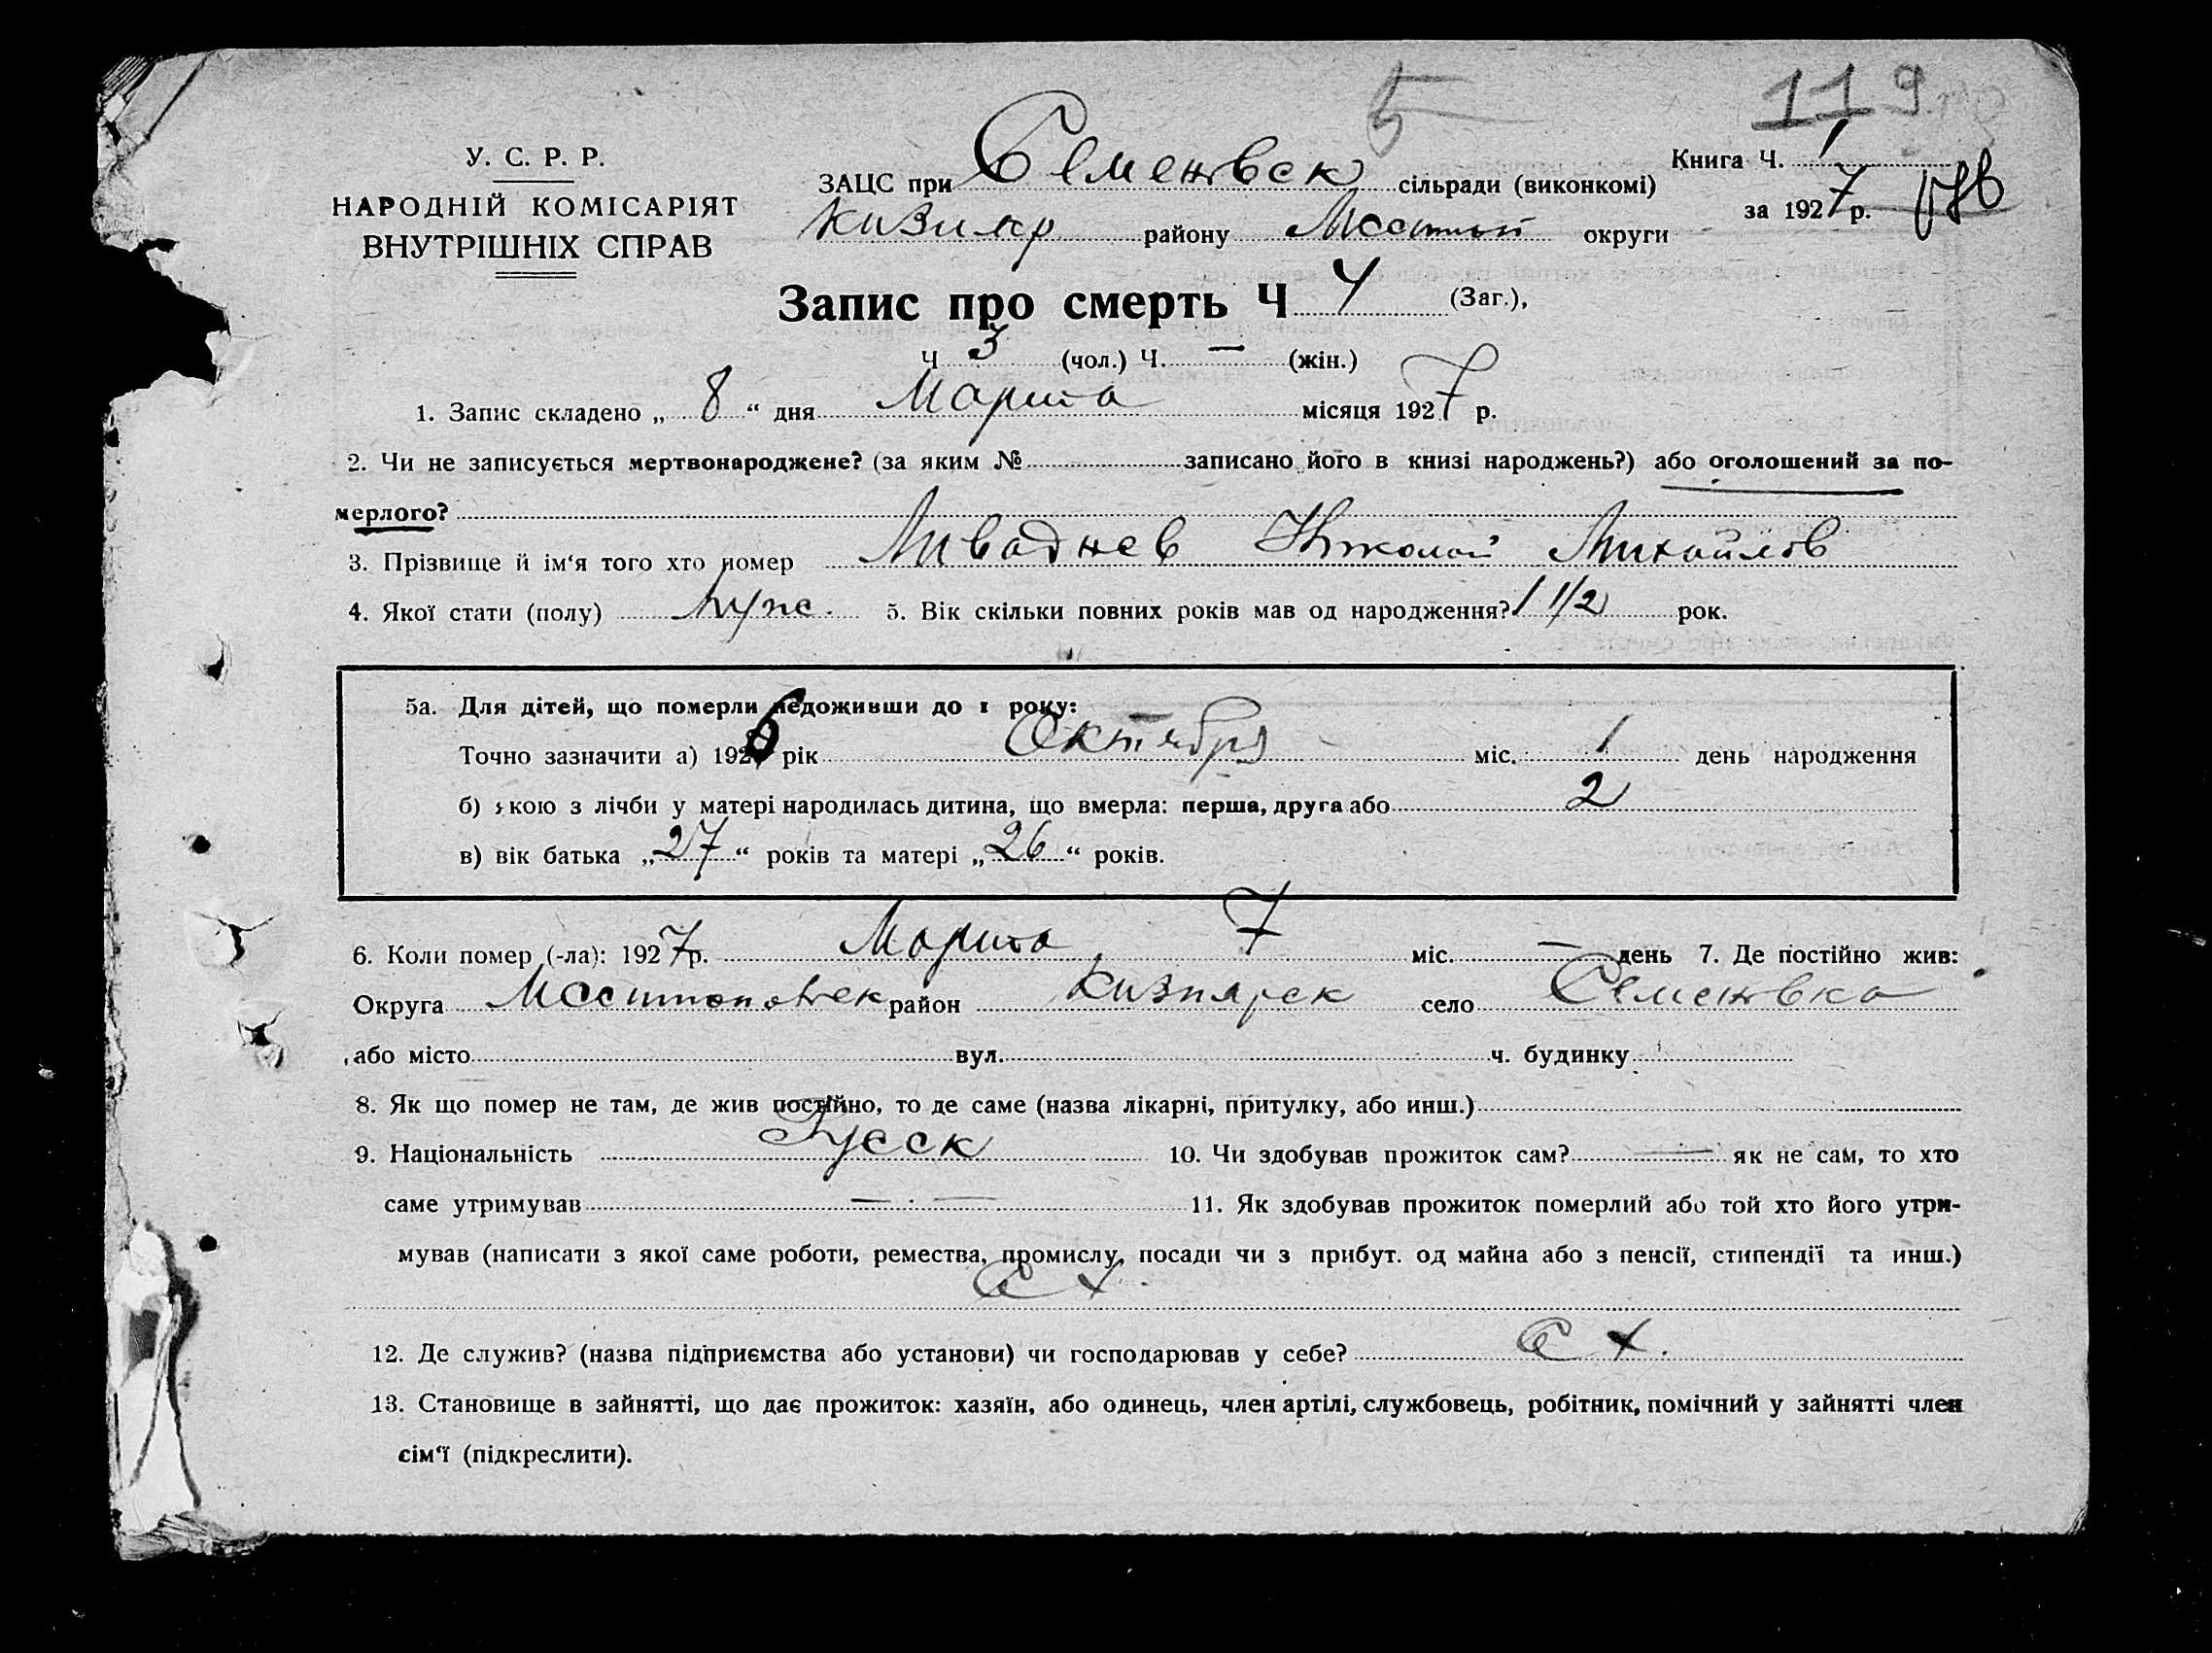 5 119
У. С. Р. Р.
НАРОДНІЙ КОМІСАРІЯТ
ВНУТРІШНІХ СПРАВ
ЗАЦС при Семеновск сільради (виконкомі)
Книга Ч. 1
за 1927 р.
району округи
Запис про смерть Ч 4 (Заг.),
Ч 3 (чол.) Ч. — (жін.)
1. Запис складено „ 8 “ дня Марта місяця 1927 р.
2. Чи не записується мертвонароджене? (за яким № записано його в книзі народжень?) або оголошений за по-
мерлого?
3. Прізвище й ім‘я того хто помер Ливаднев Николай Михайлов
4. Якої стати (полу) Муж. 5. Вік скільки повних років мав од народження? 1 1/2 рок.
5а. Для дітей, що померли недоживши до 1 року:
Точно зазначити а) 1926 рік Октября міс. 1 день народження
б) якою з лічби у матері народилась дитина, що вмерла: перша, друга або 2
в) вік батька „ 27 “ років та матері „ 26 “ років.
6. Коли помер (-ла): 1927 р. Марта 7 міс. — день 7. Де постійно жив:
Округа район Кизиярск село Семеновка
або місто вул. ч. будинку
8. Як що помер не там, де жив постійно, то де саме (назва лікарні, притулку, або инш.)
9. Національність Русск 10. Чи здобував прожиток сам? — як не сам, то хто
саме утримував — . — 11. Як здобував прожиток померлий або той хто його утри-
мував (написати з якої саме роботи, ремества, промислу, посади чи з прибут. од майна або з пенсії, стипендії та инш.)
С Х.
12. Де служив? (назва підприємства або установи) чи господарював у себе? С Х.
13. Становище в зайнятті, що дає прожиток: хазяїн, або одинець, член артілі, службовець, робітник, помічний у зайнятті член
сім‘ї (підкреслити).